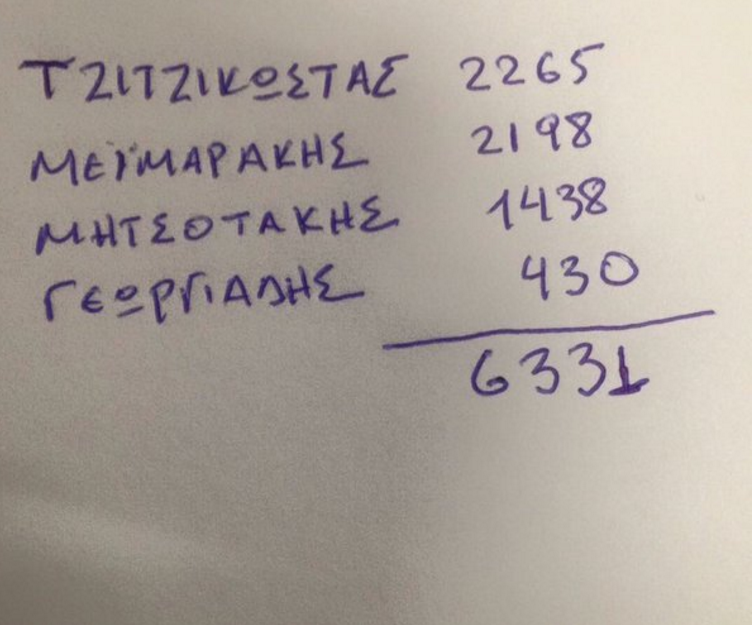 ΤΖΙΤΖΙΚΩΣΤΑΣ 2265
ΜΕΪΜΑΡΑΚΗΣ 2198
ΜΗΤΣΟΤΑΚΗΣ 1438
ΓΕΩΡΓΙΑΔΗΣ 430
6331